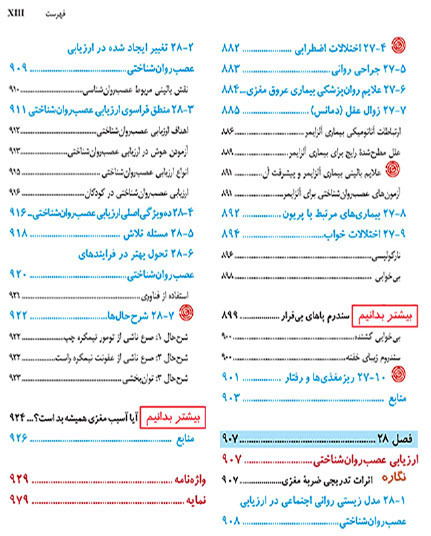 فهرست XIII
۲۷-۴ اختلالات اضطرابی ۸۸۲
۲۷-۵ جراحی روانی ۸۸۳
۲۷-۶ علایم روان‌پزشکی بیماری عروق مغزی.. ۸۸۴
۲۷-۷ زوال عقل (دمانس) ۸۸۵
ارتباطات آناتومیکی بیماری آلزایمر ۸۸۶
علل مطرح‌شدۀ رایج برای بیماری آلزایمر ۸۸۹
علایم بالینی بیماری آلزایمر و پیشرفت آن ۸۹۱
آزمون‌های عصب‌روان‌شناختی برای آلزایمر ۸۹۱
۲۷-۸ بیماری‌های مرتبط با پریون ۸۹۲
۲۷-۹ اختلالات خواب ۸۹۴
نارکولپسی ۸۹۶
بی‌خوابی ۸۹۸
بیشتر بدانیم سندرم پاهای بی‌قرار ۸۹۹
بی‌خوابی کشنده ۹۰۰
سندروم زیبای خفته ۹۰۰
۲۷-۱۰ ریزمغذی‌ها و رفتار ۹۰۱
منابع ۹۰۳
فصل ۲۸ ۹۰۷
ارزیابی عصب‌روان‌شناختی ۹۰۷
نگاره اثرات تدریجی ضربۀ مغزی ۹۰۷
۲۸-۱ مدل زیستی روانی اجتماعی در ارزیابی
عصب‌روان‌شناختی ۹۰۸
۲۸-۲ تغییر ایجاد شده در ارزیابی
عصب‌روان‌شناختی ۹۰۹
نقش بالینی مربوط عصب‌روان‌شناسی ۹۱۰
۲۸-۳ منطق فراسوی ارزیابی عصب‌روان‌شناختی ۹۱۱
اهداف ارزیابی عصب‌روان‌شناختی ۹۱۲
آزمودن هوش در ارزیابی عصب‌روان‌شناختی ۹۱۳
انواع ارزیابی عصب‌روان‌شناختی ۹۱۵
ارزیابی عصب‌روان‌شناختی در کودکان ۹۱۶
۲۸-۴ ده‌ویژگی‌اصلی‌ارزیابی عصب‌روان‌شناختی.. ۹۱۶
۲۸-۵ مسئله تلاش ۹۱۸
۲۸-۶ تحول بهتر در فرایندهای
عصب‌روان‌شناختی ۹۲۰
استفاده از فناوری ۹۲۱
۲۸-۷ شرح‌حال‌ها ۹۲۲
شرح‌حال ۱: صرع ناشی از تومور نیمکره چپ ۹۲۲
شرح‌حال ۲: صرع ناشی از عفونت نیمکره راست ۹۲۲
شرح‌حال ۳: توان‌بخشی ۹۲۳
بیشتر بدانیم آیا آسیب مغزی همیشه بد است؟... ۹۲۴
منابع ۹۲۶
واژه‌نامه ۹۲۹
نمایه ۹۷۹